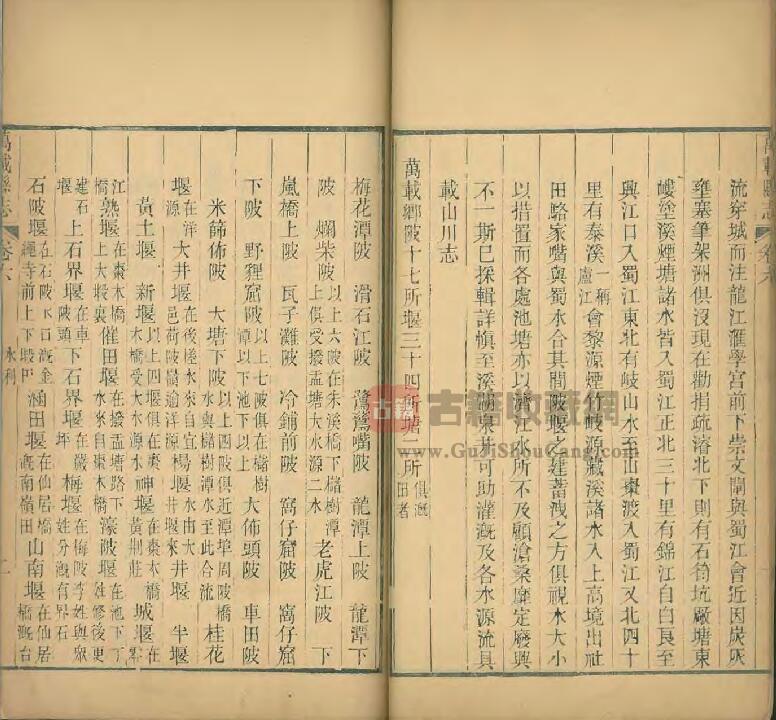 流穿城而注龍江滙學宮前下崇文閣與蜀江會近因炭灰
壅塞筆架洲俱沒現在勸捐疏濬北下則有石筍坑廠塘東
㘭塗溪煙塘諸水皆入蜀江正北三十里有錦江自白良至
興江口入蜀江東北有岐山水至山棗渡入蜀江又北四十
里有泰溪一稱盧江會黎源煙竹岐源藏溪諸水入上高境出社
田駱家嘴與蜀水合其間陂堰之建蓄洩之方俱視水大小
以措置而各處池塘亦以濟江水所不及顧滄桑靡定廢興
不一斯已採輯詳慎至溪澗泉井可助灌溉及各水源流具
載山川志
萬載鄉陂十七所堰三十四所塘二所俱溉田者
萬載縣志
卷六
梅花潭陂 滑石江陂 鵞鵞嘴陂 龍潭上陂 龍潭下
陂 爛柴陂以上六陂在朱溪橋下櫧樹潭上俱受撥盂塘大水源二水 老虎江陂 下
嵐橋上陂 瓦子灘陂 冷鋪前陂 窩仔窟陂 窩仔窟
下陂 野狸窟陂以上七陂俱在櫧樹潭以下池下以上 大佈頭陂 車田陂
米篩佈陂 大塘下陂以上四陂俱近潭埠周陂橋水與櫧樹潭水至此合流 桂花
堰在洋源 大井堰在後槎水來自宜邑荷陂嶺逾洋源 楊堰水由大井堰來 井堰 半堰
黃土堰 新堰以上四堰俱在棗木橋受大水源水 神堰在棗木橋黃荆莊 城堰在
江橋 熟堰在棗木橋上大塅裏 催田堰在撥盂塘路下水來自棗木橋 濠陂堰在池下丁姓修後更
建石堰 上石界堰在車陂頭 下石界堰在嚴坪 梅堰在梅陂李姓與眾姓分溉有界石
石陂堰在石陂下口溉金繩寺前上下塅田 涵田堰在仙居橋溉南嶺田 山南堰在仙居橋溉台
水利
二